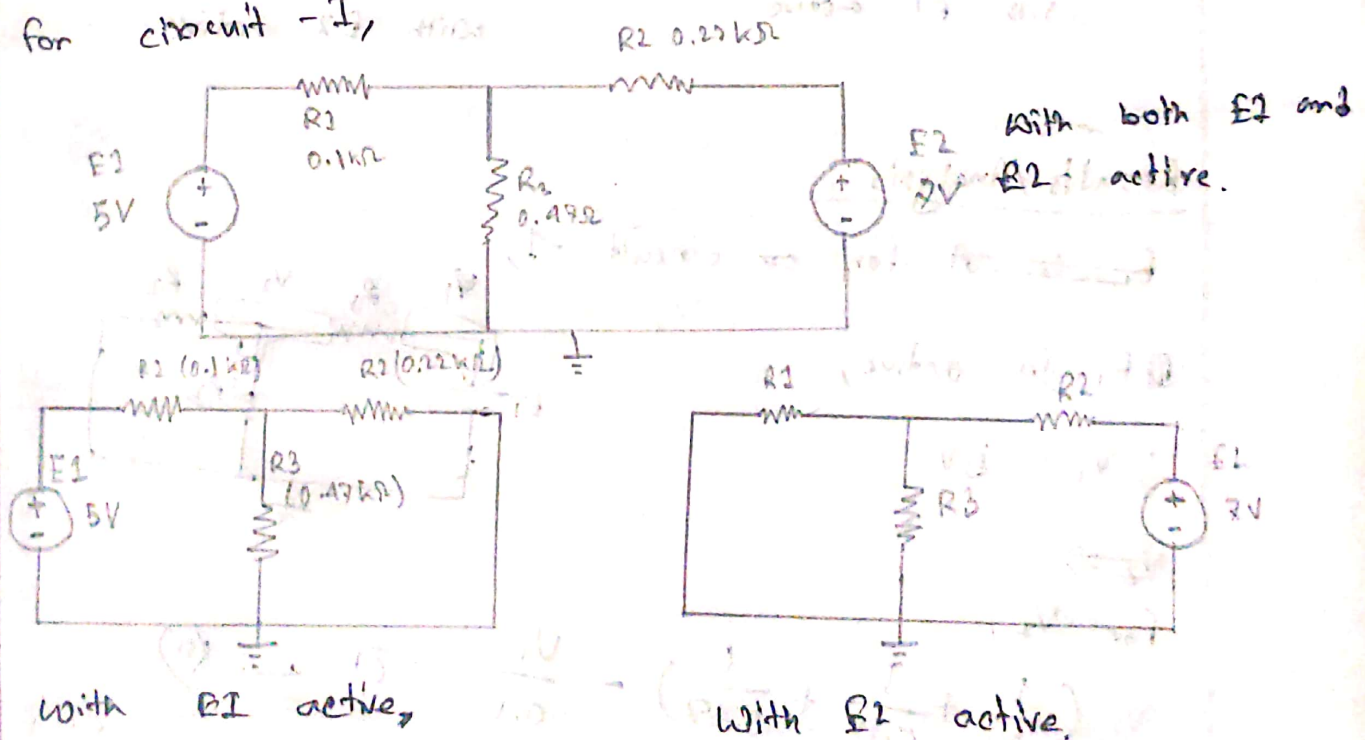 for circuit - 1,
R2 0.22kΩ
R1
0.1kΩ
E1
5V
R3
0.47Ω
E2
7V
with both E1 and
E2 active.
R1 (0.1kΩ)
R2 (0.22kΩ)
E1
5V
R3
(0.47kΩ)
R1
R2
R3
E2
7V
with E1 active,
With E2 active,